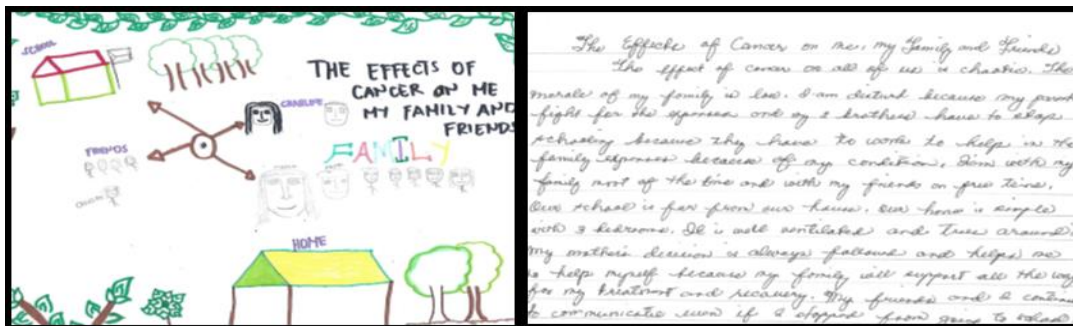 SCHOOL
THE EFFECTS OF
CANCER ON ME
MY FAMILY AND
FRIENDS
FRIENDS
FAMILY
HOME
The Effects of Cancer on me, my Family and Friends
The effect of cancer on all of us is chaotic. The
morale of my family is low. I am disturb because my parents
fight for the expenses and my 2 brothers have to stop
schooling because they have to work to help in the
family expenses because of my condition. I'm with my
family most of the time and with my friends on free time.
Our school is far from our house. Our home is simple
with 3 bedrooms. It is well ventilated and trees around
My mother's decision is always followed and helps me
to help myself because my family will support all the way
for my treatment and recovery. My friends and I continue
to communicate even if I stopped from going to school